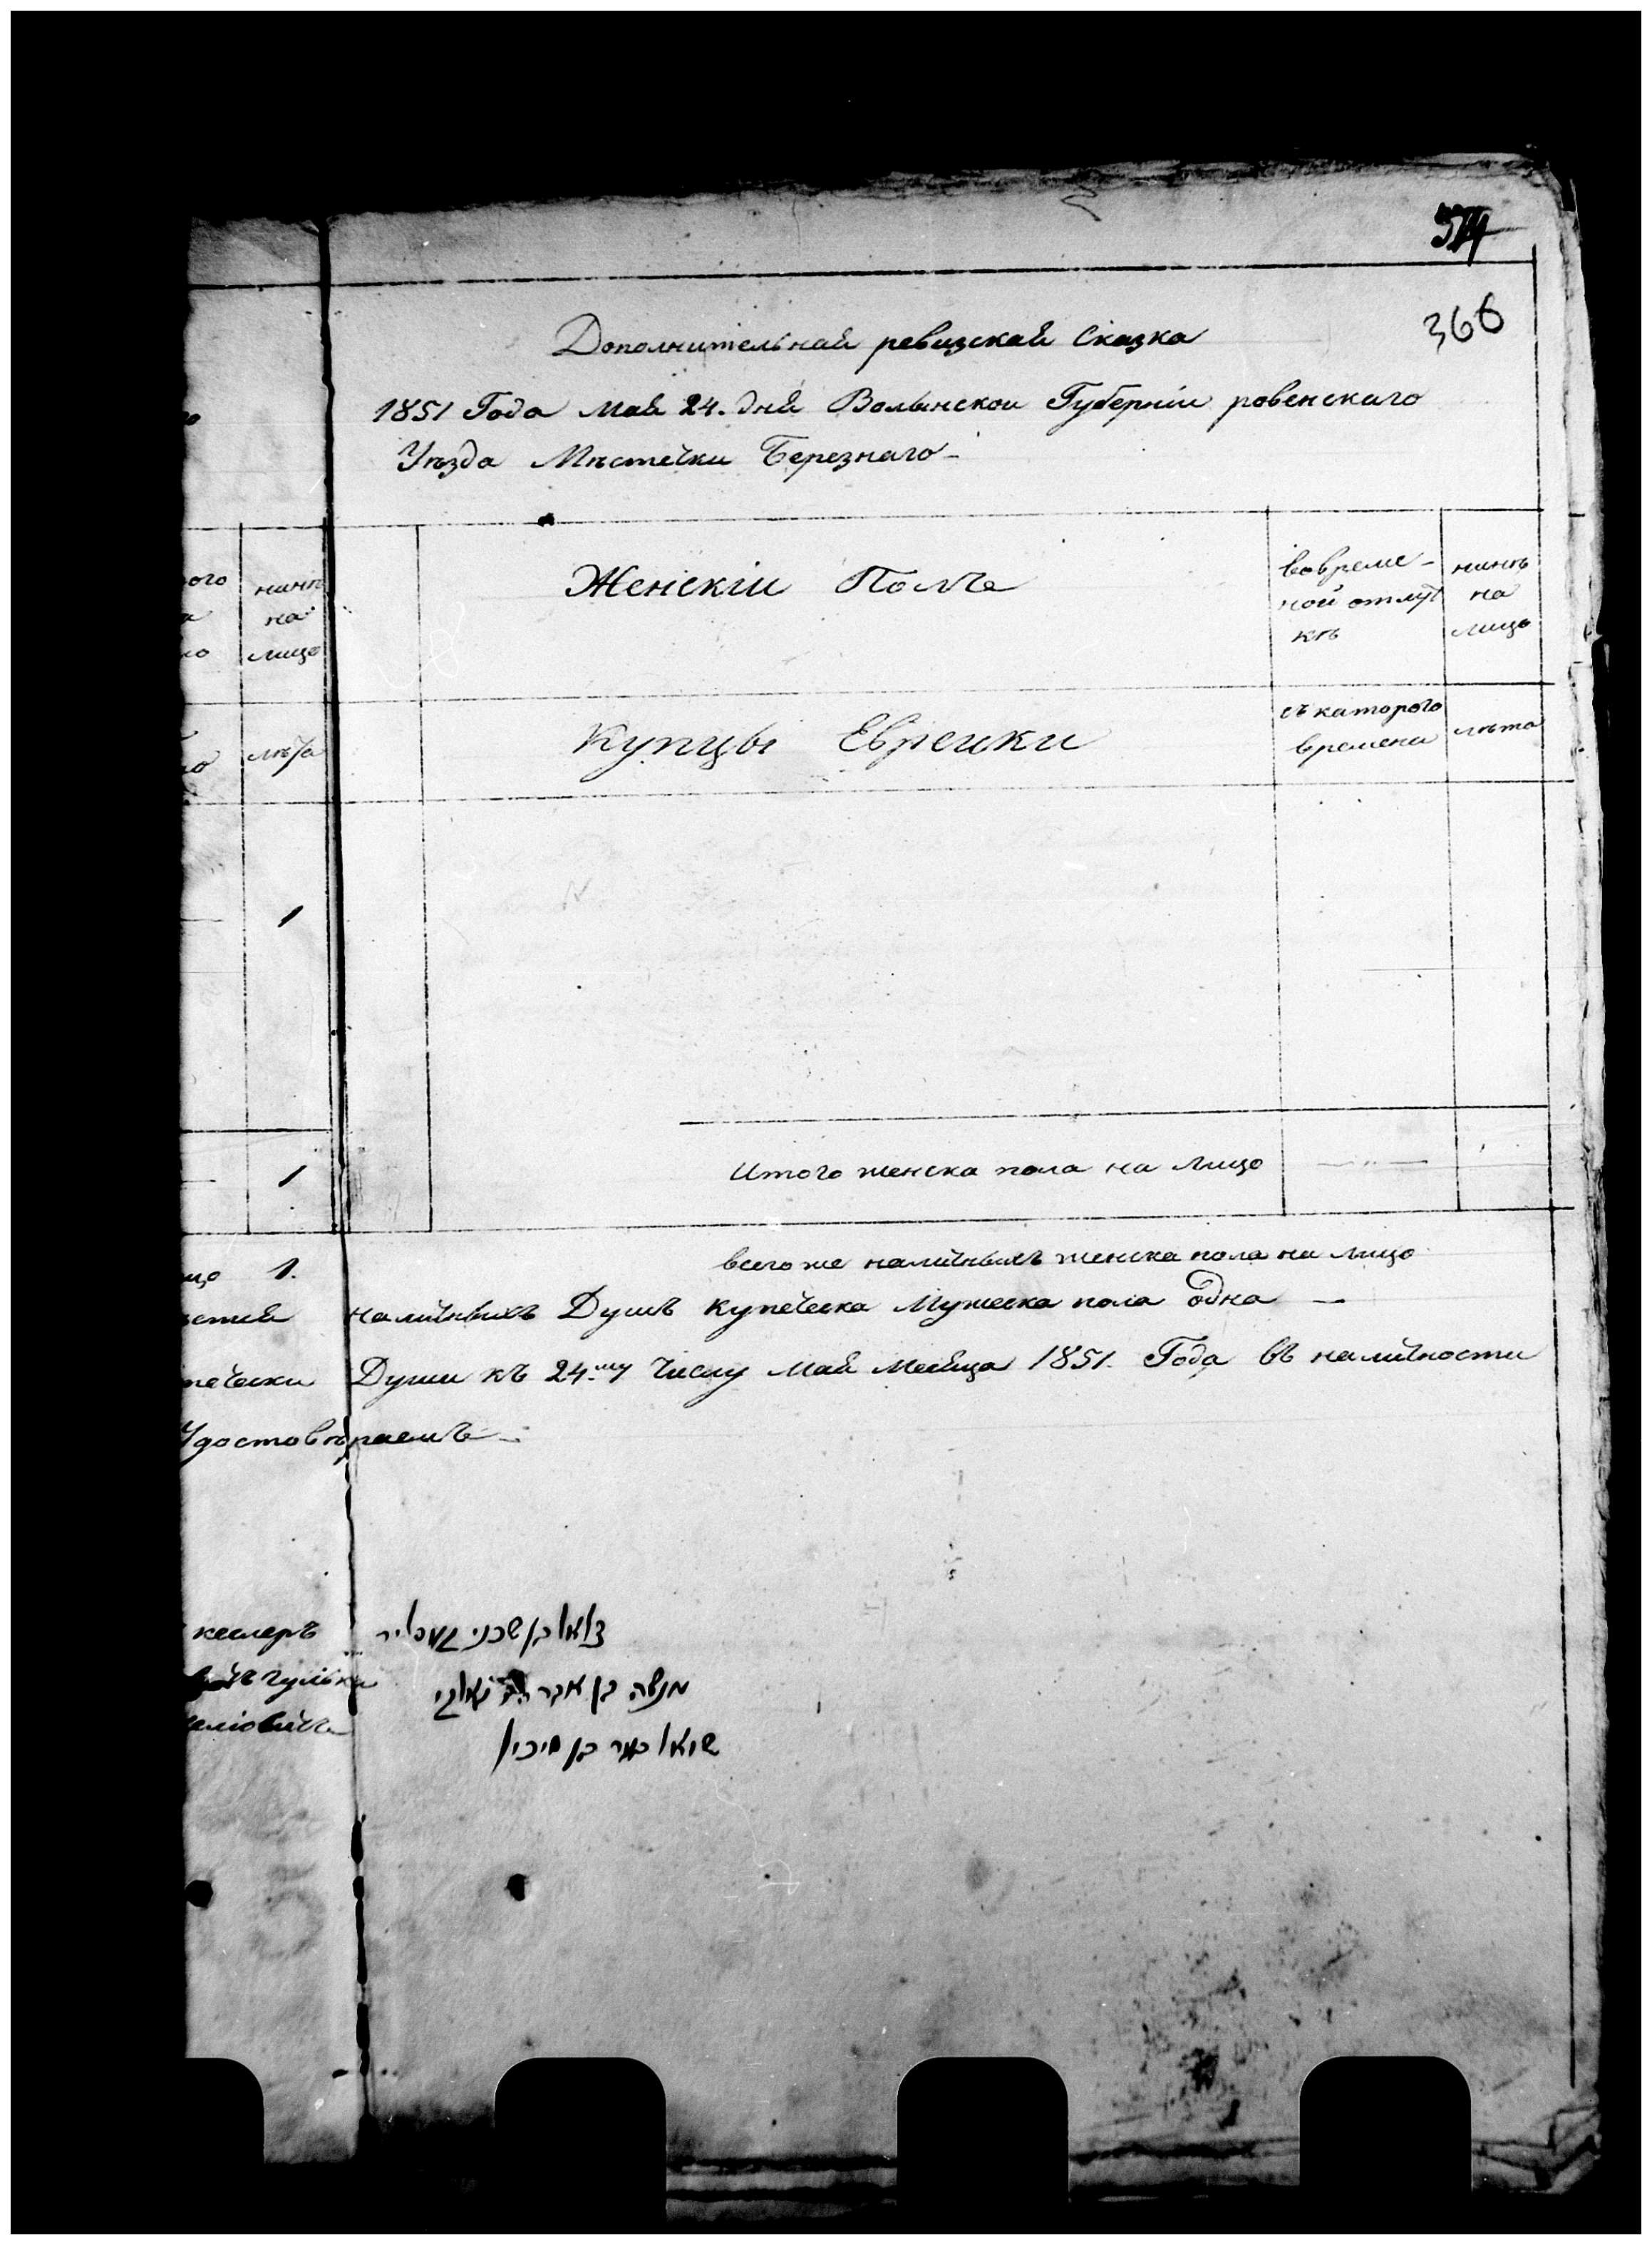 366
Дополнительная ревизская Сказка
1851 Года Мая 24. дня Волынской Губерніи ровенскаго
Уѣзда Мѣстечки Березнаго
ого нинѣ
на
лицо
Женскіи Полъ
вовреме-
ной отлуч
кѣ
нинѣ
на
лицо
лѣта
Купцы Евреики
съ каторого
времени
лѣта
1
Итого женска пола на лицо
1
всего же наличныхъ женска пола на лицо
цо 1.
наличныхъ Душъ купеческа Мужеска пола Одна
печески Души къ 24.му Числу Мая Месяца 1851. Года въ наличности
Удостовѣраемъ
кеслеръ
בן שכני
מנשה בן
שמואל בער בן